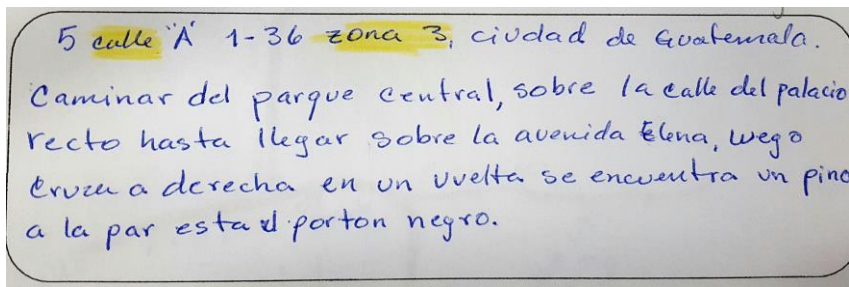 5 calle "A" 1-36 zona 3, ciudad de Guatemala.
Caminar del parque central, sobre la calle del palacio
recto hasta llegar sobre la avenida Elena, luego
cruza a derecha en un vuelta se encuentra un pino
a la par esta el porton negro.